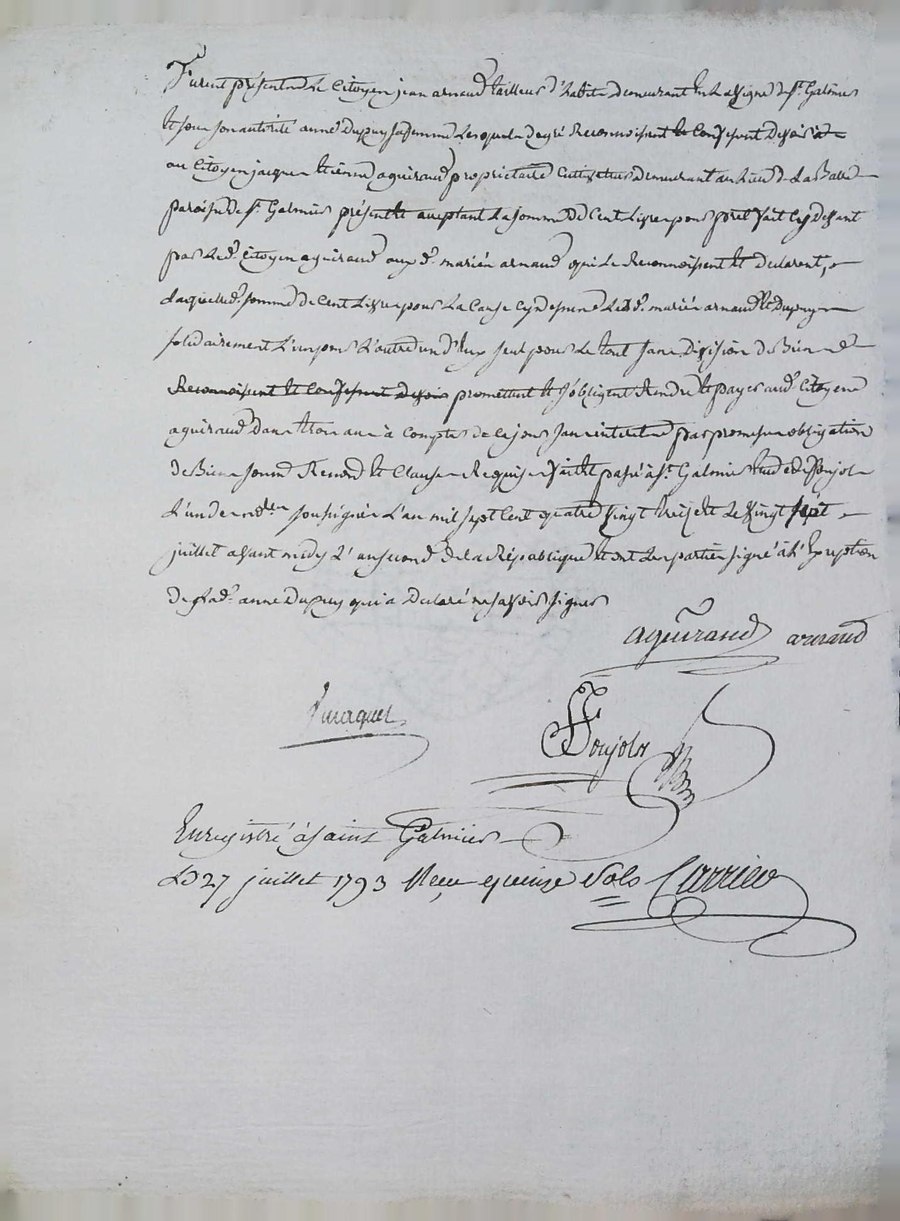 Furent présent le Citoyen jean arnaud tailleur d'habits demeurant en La ville de St. Galmier
et sous son autorité anne Dupuy sa femme Lesquels de gré Reconnoissent et Confessent devoir
au Citoyen jacques Etienne aguiraud propriétaire Cultivateur demeurant au Lieu de La
paroisse de St. Galmier présent et aceptant La somme de Cent Livres pour pret fait Cy devant
par Led. Citoyen aguiraud auxd. mariés arnaud qui Le Reconnoissent et declarent,
Laquelle d. somme de Cent Livres pour La Cause Cy dessus Lesd. mariés arnaud et Dupuy
solidairement L'un pour L'autre un d'eux seul pour Le tout sans Division de Biens
Reconnoissent et Confessent devoir promettent et s'obligent Rendre et payer aud. Citoyen
aguiraud dans trois ans à Compter de Ce jour sans interet par promesse obligation
de Biens soumn. Renond. et Clauses Requises fait et passé à St. Galmier Etude de Ponjols
L'un de nous nres. soussignés L'an mil sept Cent quatre vingt treize et Le vingt sept
juillet avant midy L'an second de La République et ont Les parties signé à L'Exception
de Lad. anne Dupuy qui a declaré ne savoir signer
aguiraud arnaud
Ponjols
Enregistré à saint Galmier
Le 27 juillet 1793 Reçu quinze sols Carrier